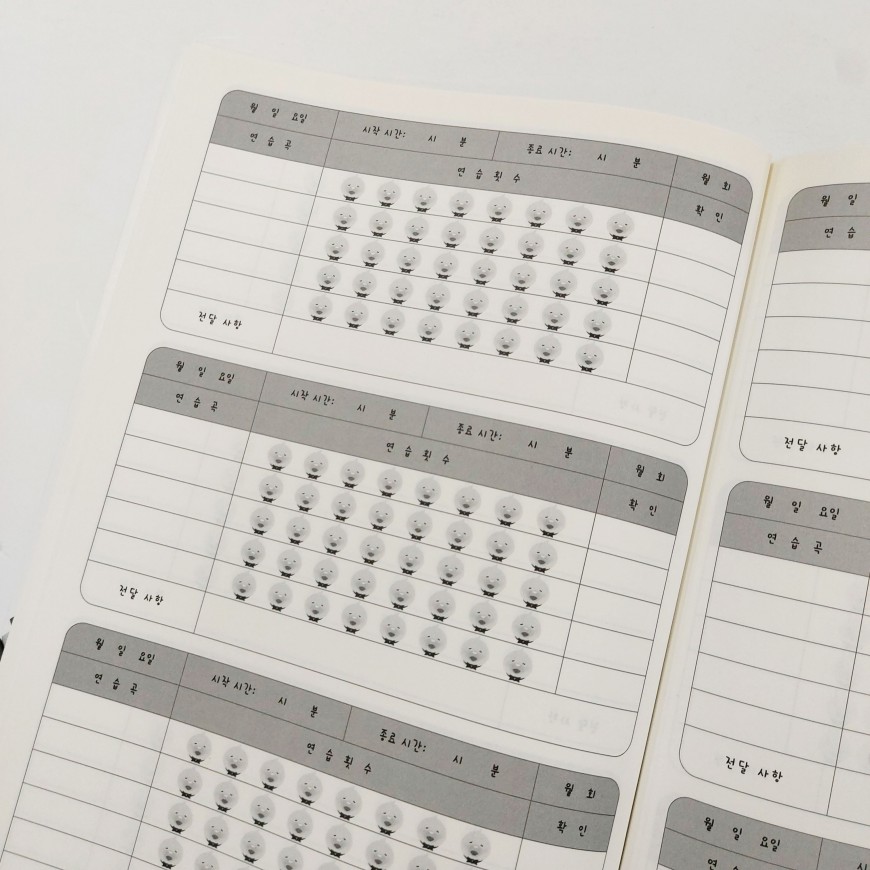 월 일 요일 시작 시간: 시 분 종료 시간: 시 분 월 회
연습곡 연습횟수 확인
전달 사항
월 일 요일 시작 시간: 시 분 종료 시간: 시 분 월 회
연습곡 연습횟수 확인
전달 사항
월 일 요일 시작 시간: 시 분 종료 시간: 시 분 월 회
연습곡 연습횟수 확인
월 일
연습
전달 사항
월 일 요일
연습곡
전달 사항
월 일 요일
연습곡